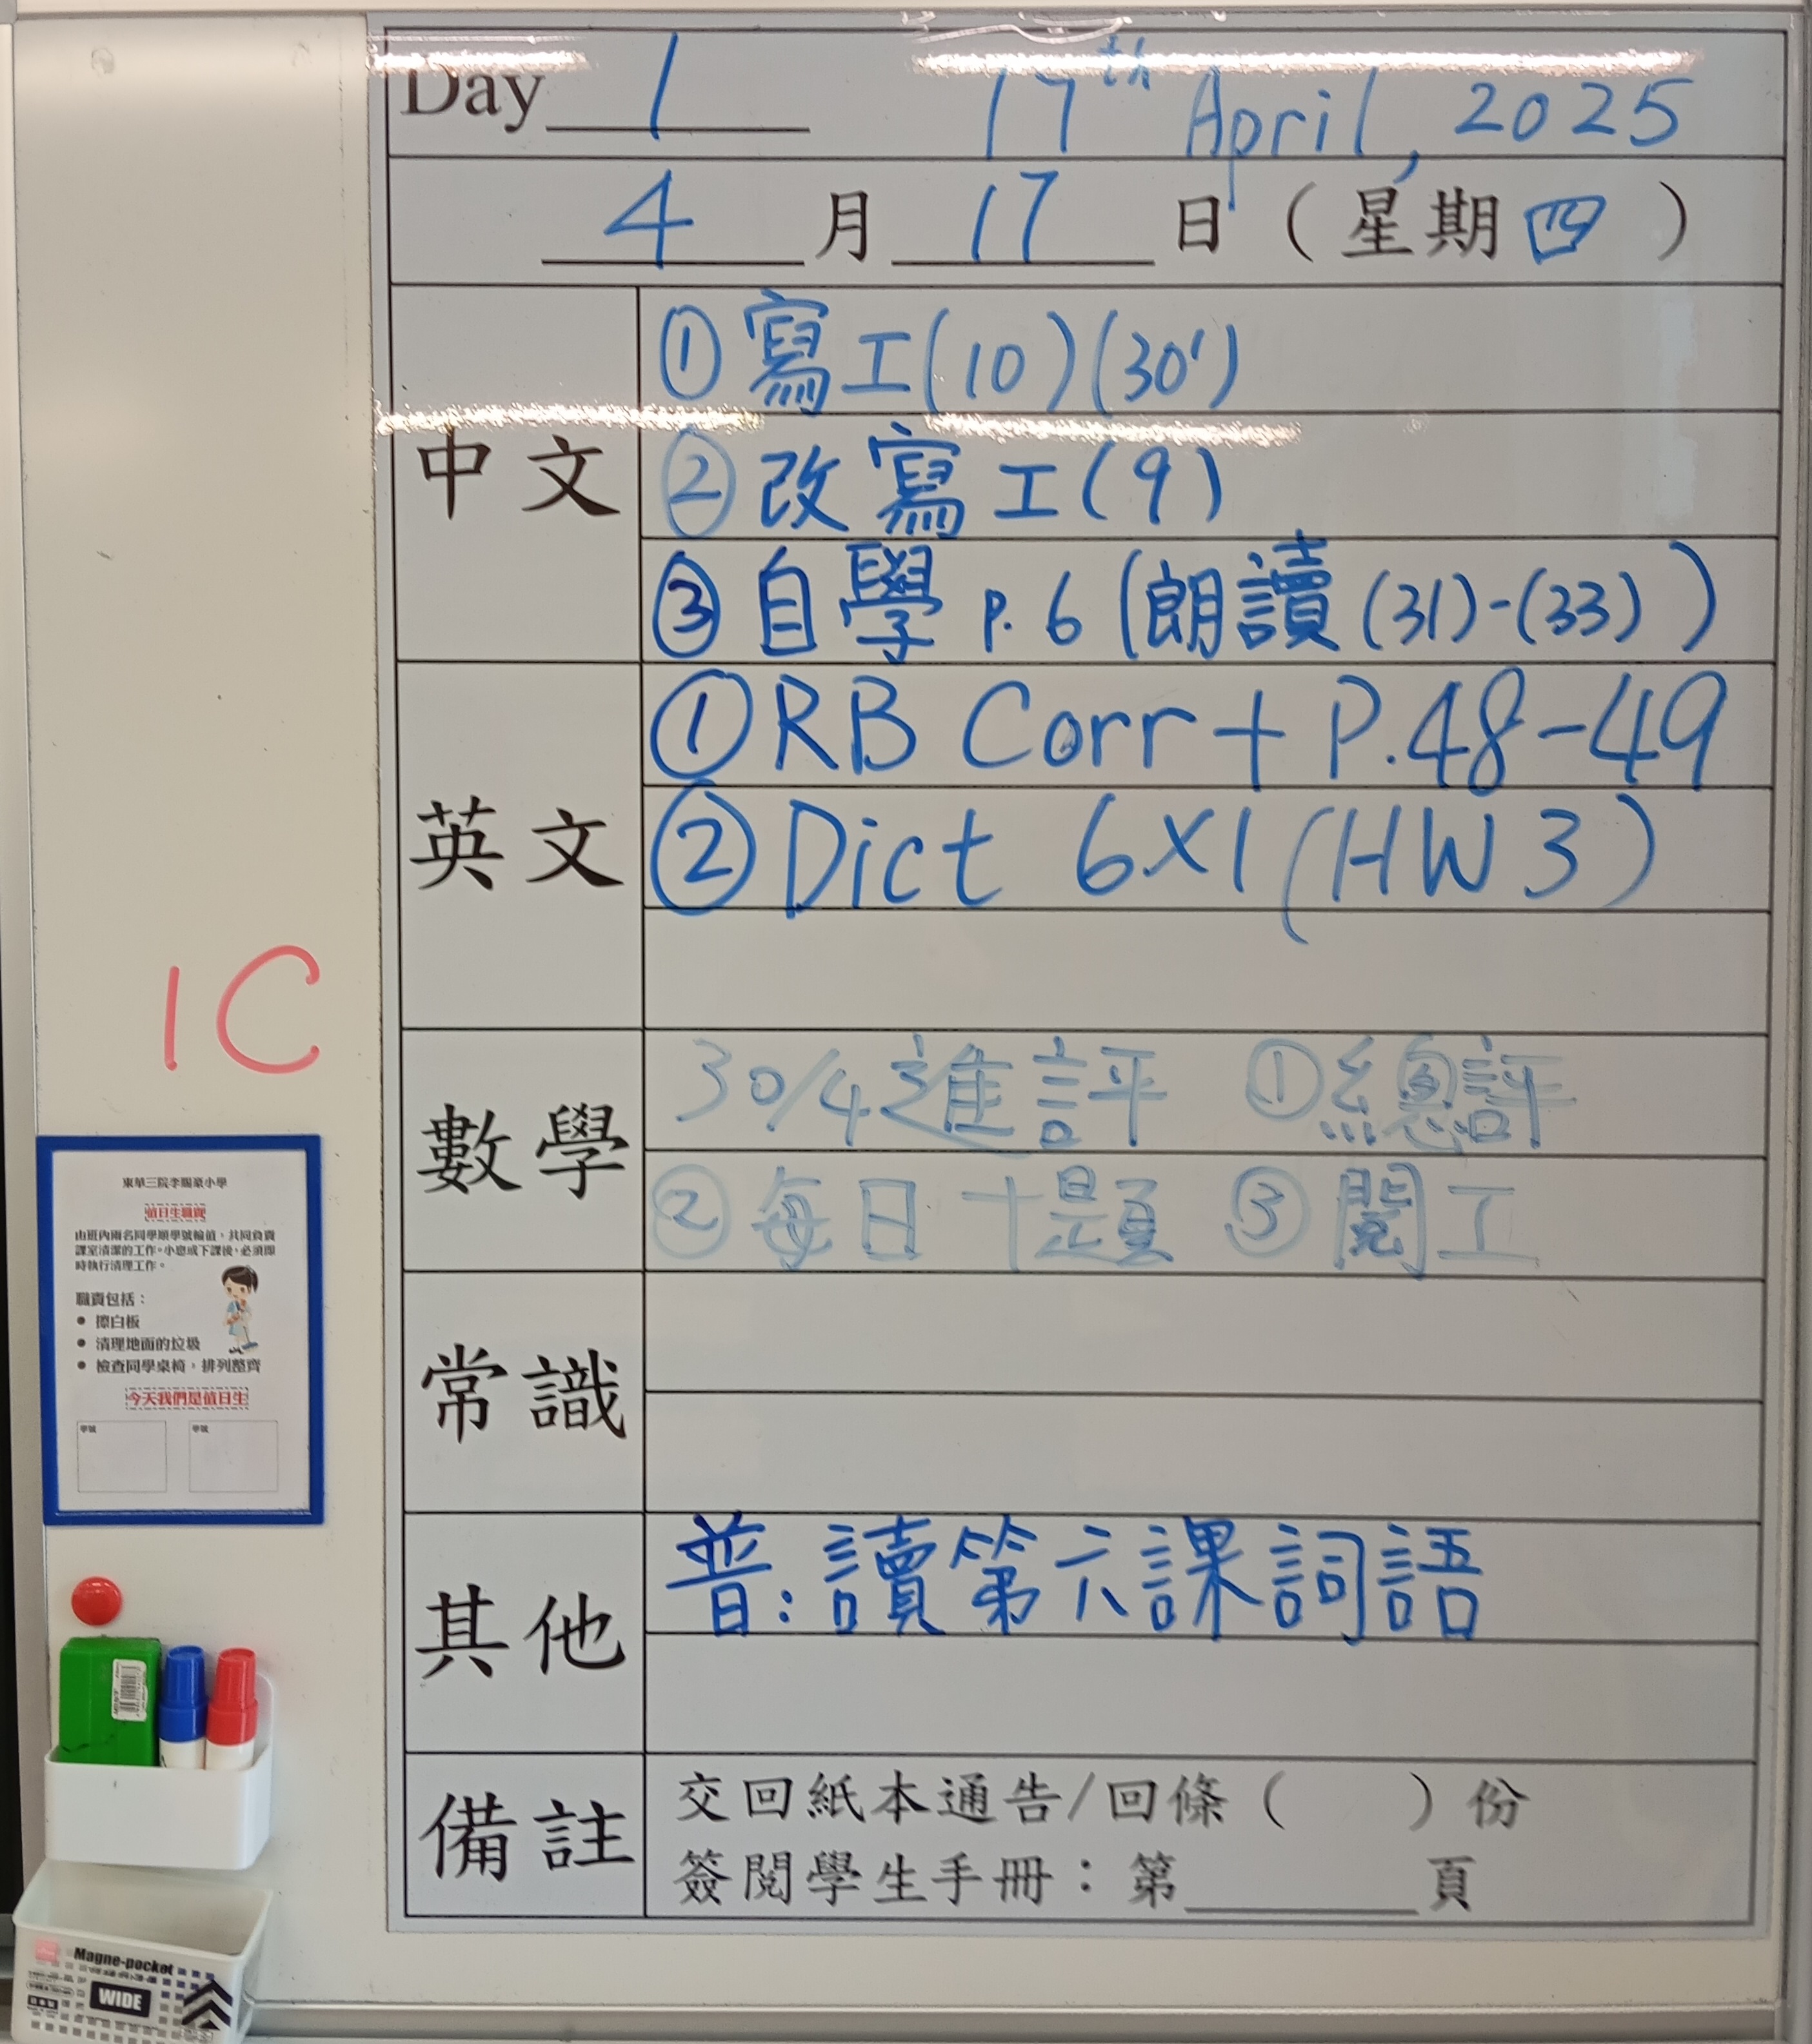 Day 1 17th April, 2025
4 月 17 日 (星期四)
中文
①寫工(10)(30')
②改寫工(9)
③自學 p.6 (朗讀 (31)-(33))
英文
①RB Corr + P.48-49
②Dict 6x1 (HW3)
數學
30/4進評 ①總評
②每日十題 ③閱工
常識
其他
普:讀第六課詞語
備註
交回紙本通告/回條( )份
簽閱學生手冊:第______頁
1C
東華三院李賜豪小學
值日生職責
由班內兩名同學順學號輪值,共同負責
課室清潔的工作。小息或下課後,必須即
時執行清理工作。
職責包括:
• 擦白板
• 清理地面的垃圾
• 檢查同學桌椅,排列整齊
今天我們是值日生
學號 學號
Magne-pocket
WIDE